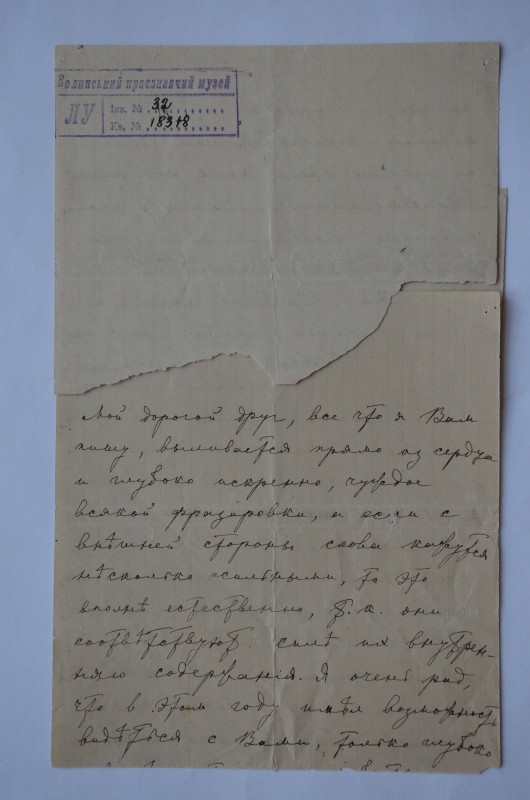 Волинський краєзнавчий музей
ЛУ
Інв. № 32
Кв. № 18318
Мой дорогой друг, все что я Вам
пишу, выливается прямо из сердца
и глубоко искренно, чуждое
всякой фразировки, и если с
внѣшней стороны слова кажутся
нѣсколько сильными, то это
вполнѣ естественно, т.к. они
соотвѣтствуют силѣ их внутрен-
няго содержанія. Я очень рад,
что в этом году имѣл возможность
видѣться с Вами, только глубоко